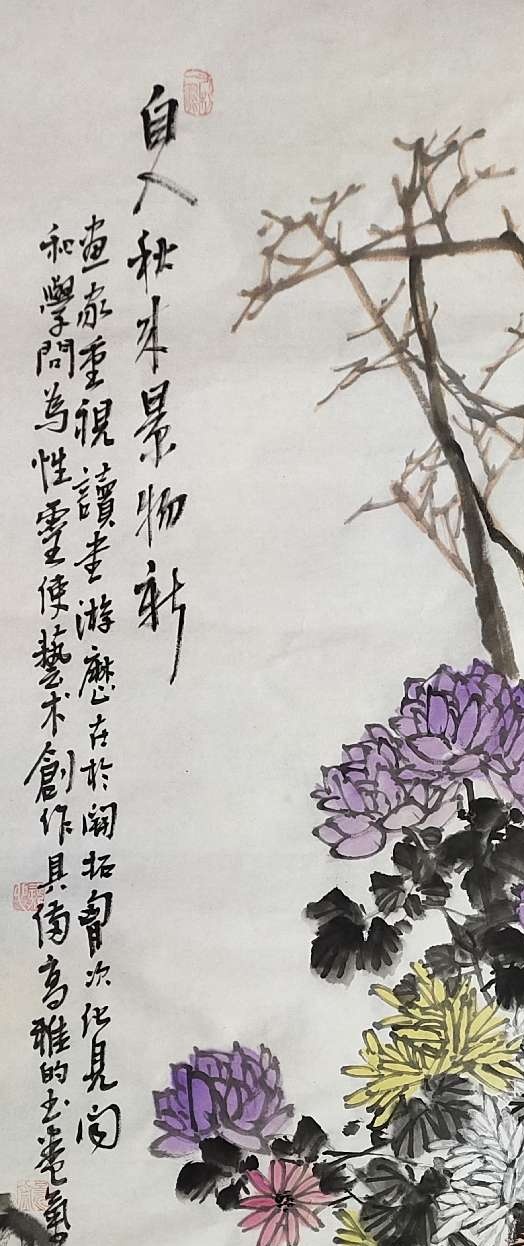 自入秋来景物新
畫家重視讀書游歷在於開拓胸次化見闻
和學問為性靈使藝术創作具備高雅的书卷氣